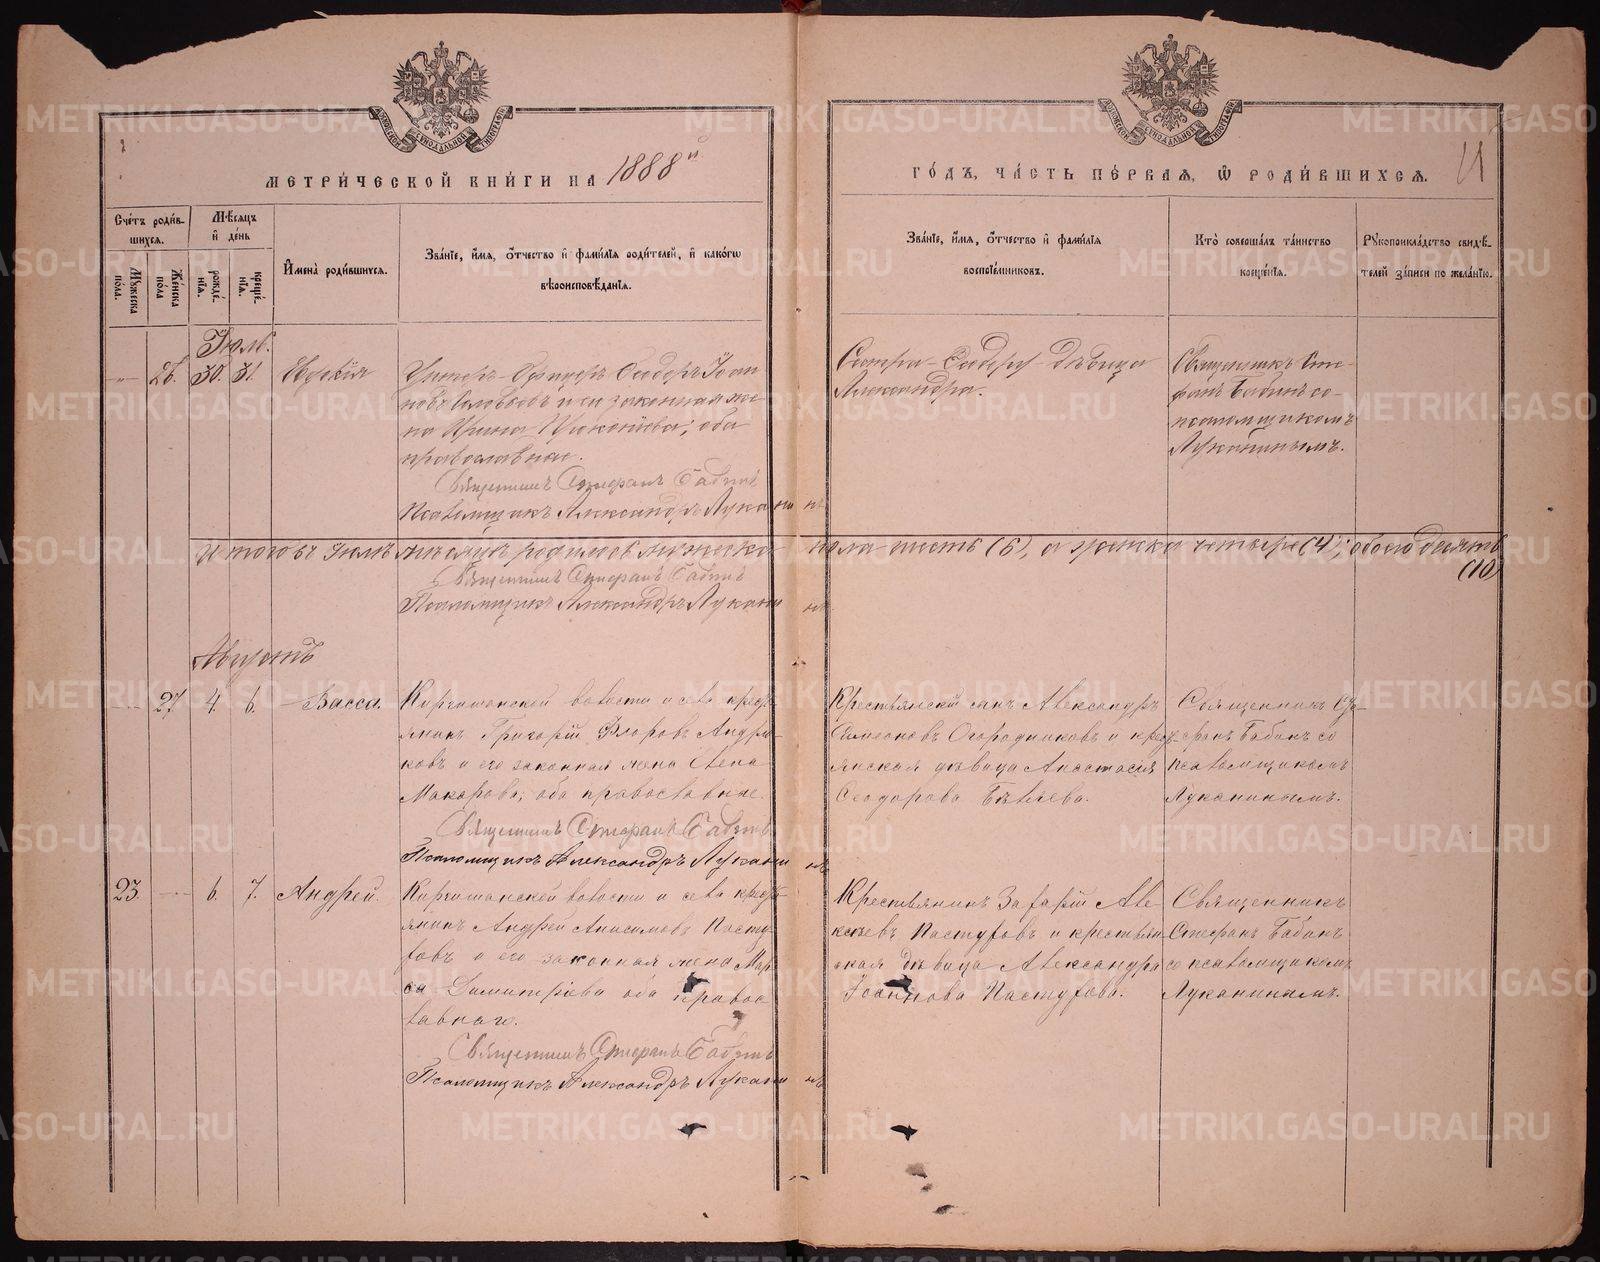 МЕТРИЧЕСКОЙ КНИГИ НА 1888й
ГОДЪ, ЧАСТЬ ПЕРВАЯ, Ѡ РОДИВШИХСЯ.
Счетъ родившихся.
Мѣсяцъ и день
Имена родившихся.
Званіе, имя, отчество и фамилія родителей, и какогѡ
вѣроисповѣданія.
Званіе, имя, отчество и фамилія
воспріемниковъ.
Кто совершалъ таинство
крещенія.
Рукоприкладство свидѣ-
телей записи по желанію.
Мужеска пола.
Женска пола
рожденія.
крещенія.
Іюль.
26. 30. 31.
Унтеръ-Офицеръ Сидоръ Іоан
новъ Соловьевъ и его законная же
на Ирина; оба
православные.
Священникъ Стефанъ Бабинъ
Псаломщикъ Александръ Луканинъ
Сестра дѣвица
Александра.
Священникъ Сте-
фанъ Бабинъ со
псаломщикомъ
Луканинымъ.
Итого въ Іюлѣ мѣсяцѣ родилось мужеска пола шесть (6), а женска четыре (4); обоего десять
(10)
Священникъ Стефанъ Бабинъ
Псаломщикъ Александръ Луканинъ
Августъ
27. 4. 6. Васса.
Киргишанской волости и села кресть
янинъ Григорій Флоровъ Андрю
ковъ и его законная жена Елена
Макарова, оба православные.
Священникъ Стефанъ Бабинъ
Псаломщикъ Александръ Луканинъ
Крестьянскій сынъ Александръ
Симеоновъ Огородниковъ и кресть
янская дѣвица Анастасія
Ѳеодорова Бѣляева.
Священникъ Сте-
фанъ Бабинъ со
псаломщикомъ
Луканинымъ.
23. 6. 7. Андрей.
Киргишанской волости и села кресть
янинъ Андрей Анисимовъ Пасту
ховъ и его законная жена Мар
са Димитріева оба право
славнаго.
Священникъ Стефанъ Бабинъ
Псаломщикъ Александръ Луканинъ
Крестьянинъ Захарій Але-
ксѣевъ Пастуховъ и крестьян
ская дѣвица Александра
Іоаннова Пастухова.
Священникъ
Стефанъ Бабинъ
со псаломщикомъ
Луканинымъ.
METRIKI.GASO-URAL.RU